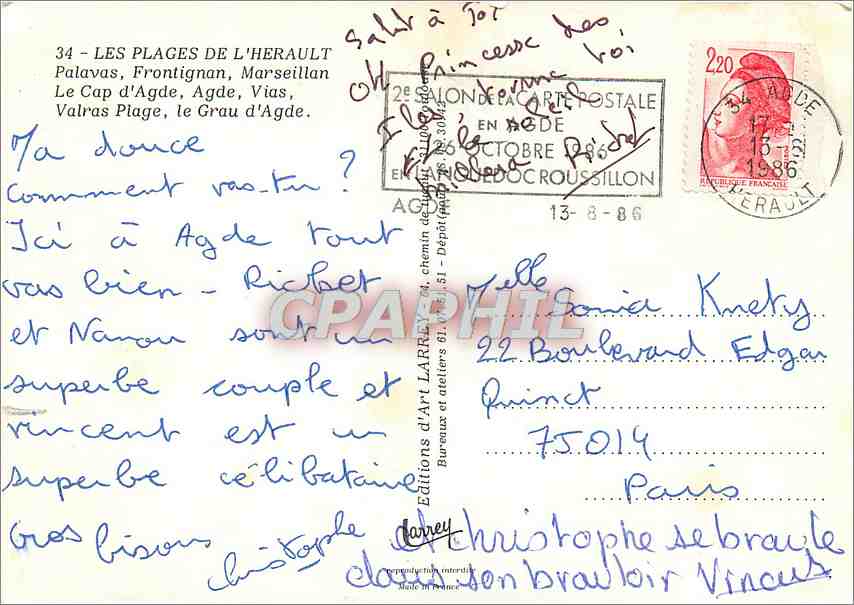 34 - LES PLAGES DE L'HERAULT
Palavas, Frontignan, Marseillan
Le Cap d'Agde, Agde, Vias,
Valras Plage, le Grau d'Agde.
Salut à Toi
Oh Princesse des
Iles,
2,20
REPUBLIQUE FRANÇAISE
34 AGDE
17 H
13 - 8
1986
HERAULT
2e SALON DE LA CARTE POSTALE
EN AGDE
26 OCTOBRE 1986
EN LANGUEDOC ROUSSILLON
13-8-86
Ma douce
Comment vas-tu ?
Ici à Agde tout
vas bien - Richet
et Nanou sont un
superbe couple et
vincent est un
superbe célibataire
Gros bisous
christophe
Editions d'Art LARREY
Bureaux et ateliers 61.07.51.51 - Dépôt
Melle Sonia Knety
22 Boulevard Edgar
Quinet
75014
Paris
CPAPHIL
Larrey
reproduction interdite
Made in France
et christophe se branle
dans son branloir Vincent